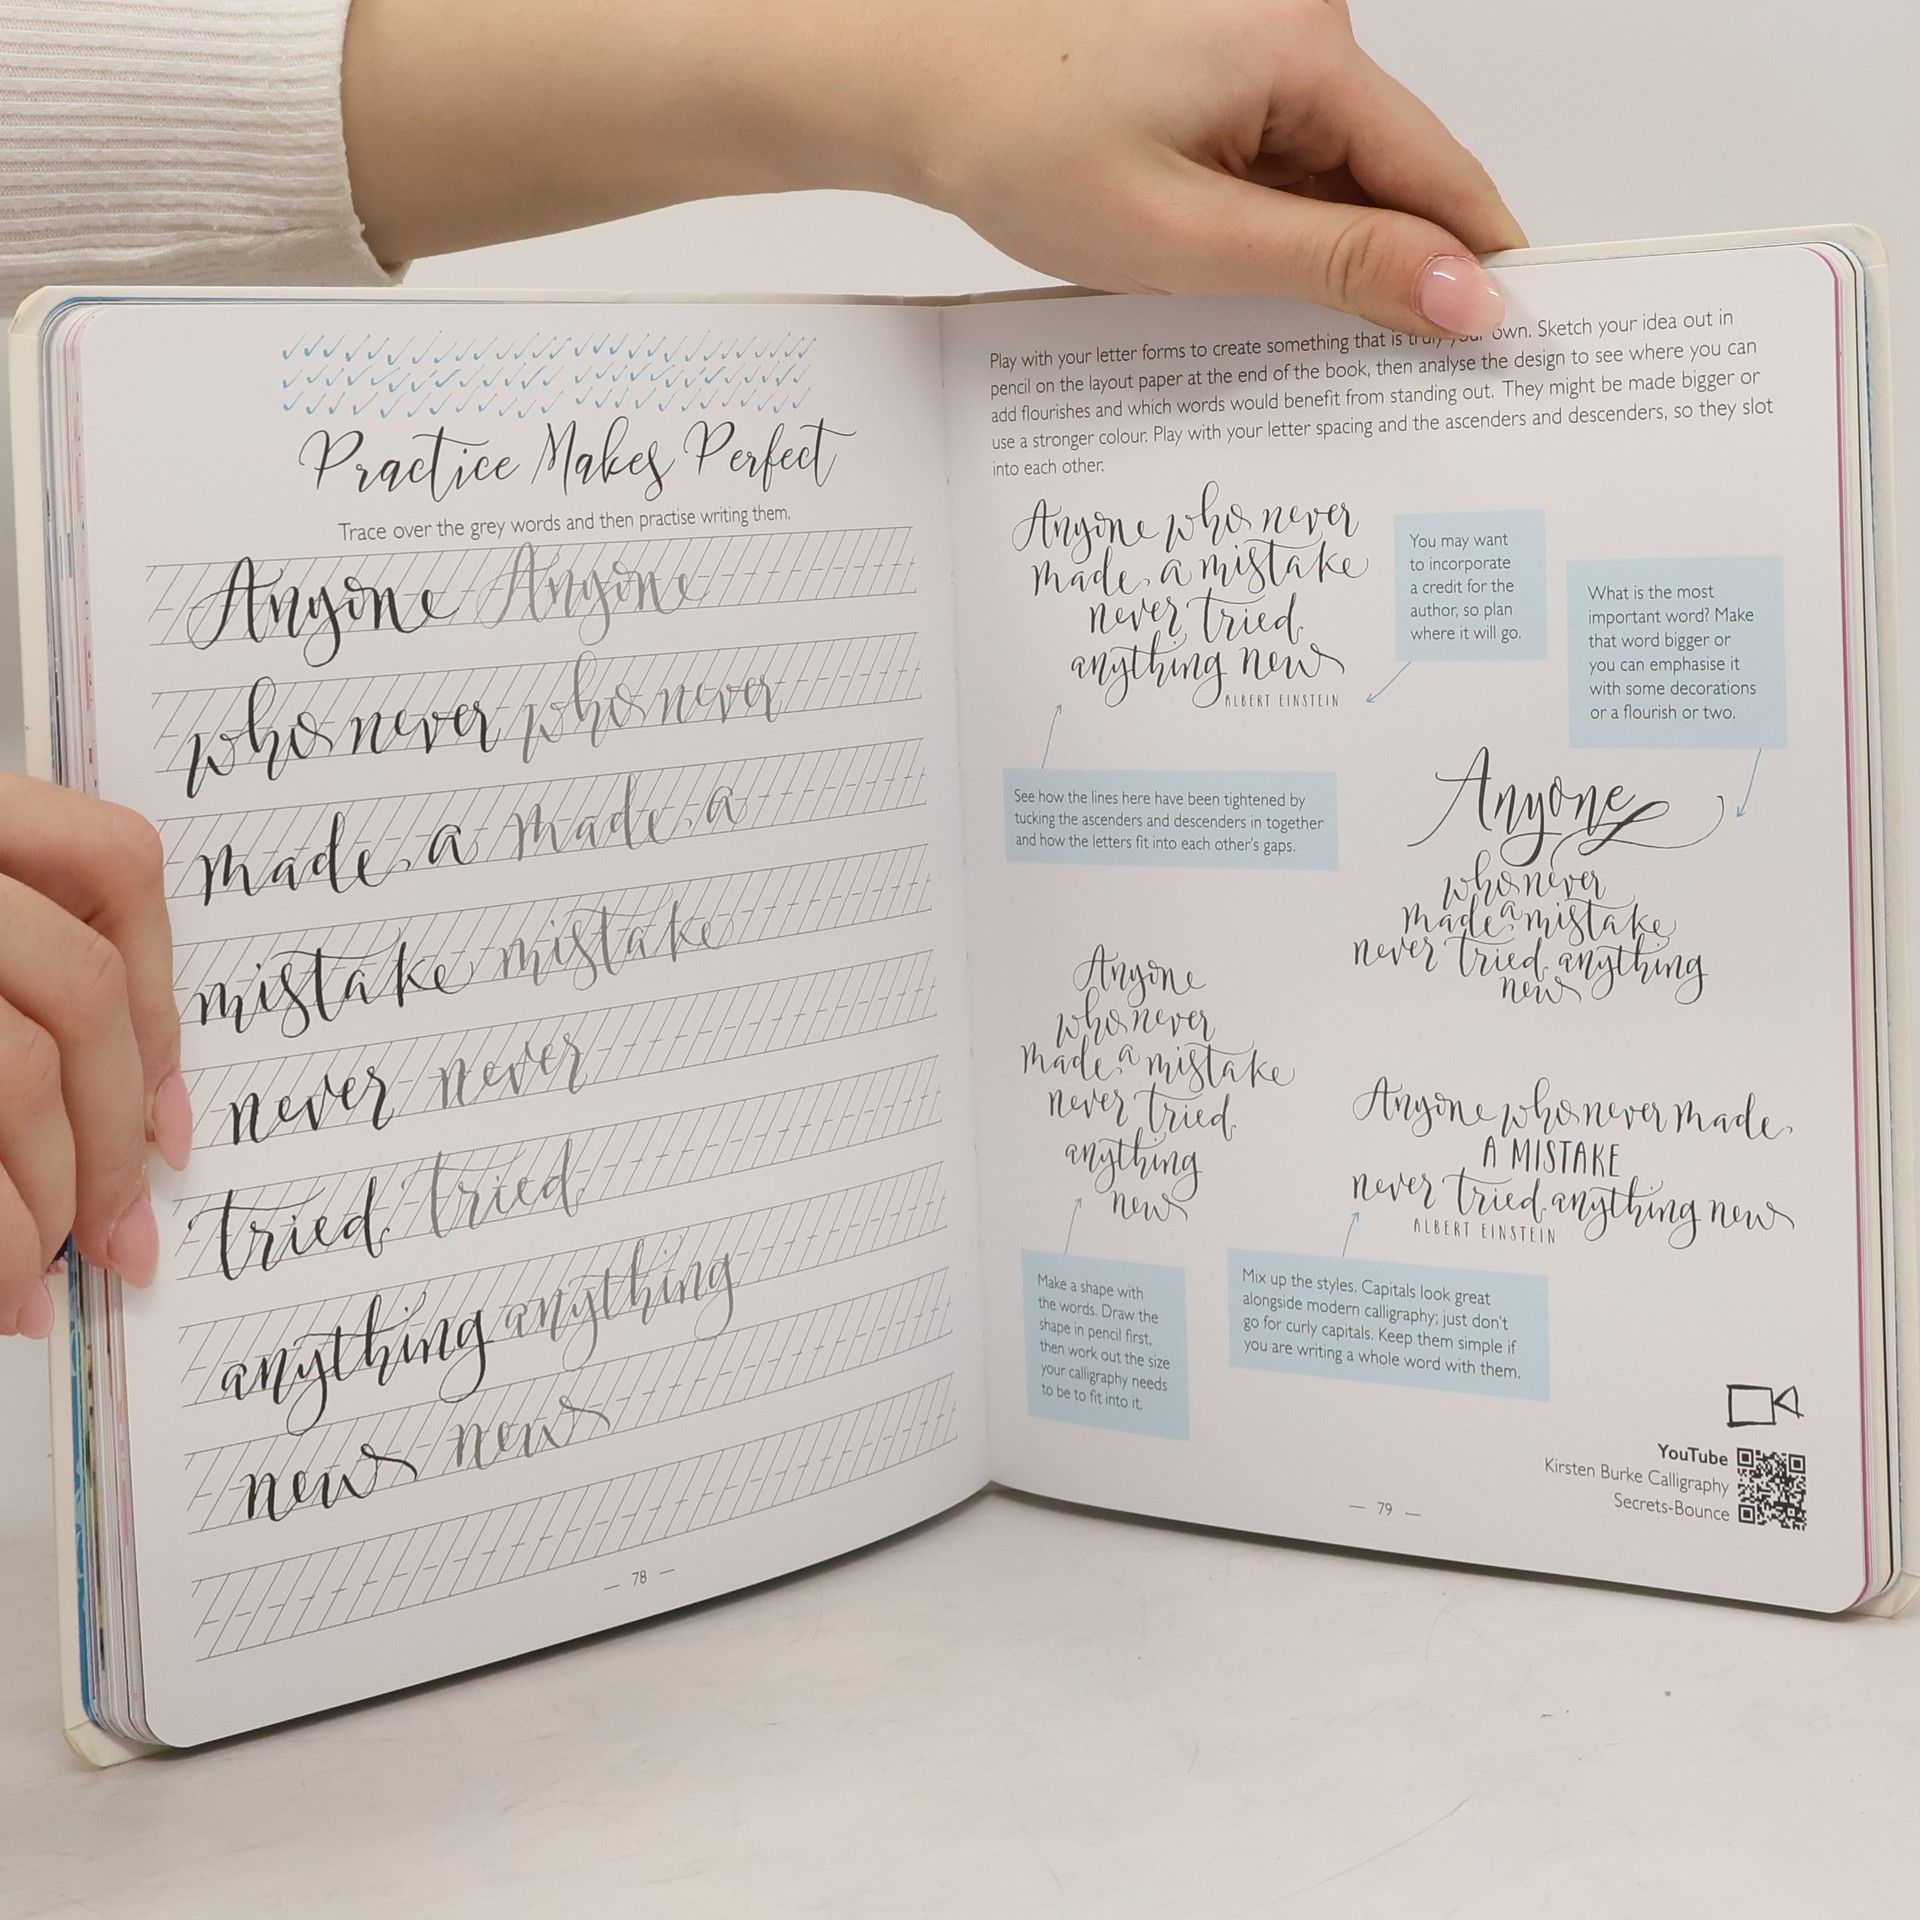 Practice Makes Perfect
Trace over the grey words and then practise writing them.
Anyone Anyone
who never who never
made a made a
mistake mistake
never never
tried tried
anything anything
new new
— 78 —
Play with your letter forms to create something that is truly your own. Sketch your idea out in
pencil on the layout paper at the end of the book, then analyse the design to see where you can
add flourishes and which words would benefit from standing out. They might be made bigger or
use a stronger colour. Play with your letter spacing and the ascenders and descenders, so they slot
into each other.
Anyone who never
made a mistake
never tried
anything new
ALBERT EINSTEIN
You may want
to incorporate
a credit for the
author, so plan
where it will go.
What is the most
important word? Make
that word bigger or
you can emphasise it
with some decorations
or a flourish or two.
See how the lines here have been tightened by
tucking the ascenders and descenders in together
and how the letters fit into each other's gaps.
Anyone
who never
made a mistake
never tried anything
new
Anyone
who never
made a mistake
never tried
anything
new
Anyone who never made
A MISTAKE
never tried anything new
ALBERT EINSTEIN
Make a shape with
the words. Draw the
shape in pencil first,
then work out the size
your calligraphy needs
to be to fit into it.
Mix up the styles. Capitals look great
alongside modern calligraphy; just don't
go for curly capitals. Keep them simple if
you are writing a whole word with them.
YouTube
Kirsten Burke Calligraphy
Secrets-Bounce
— 79 —